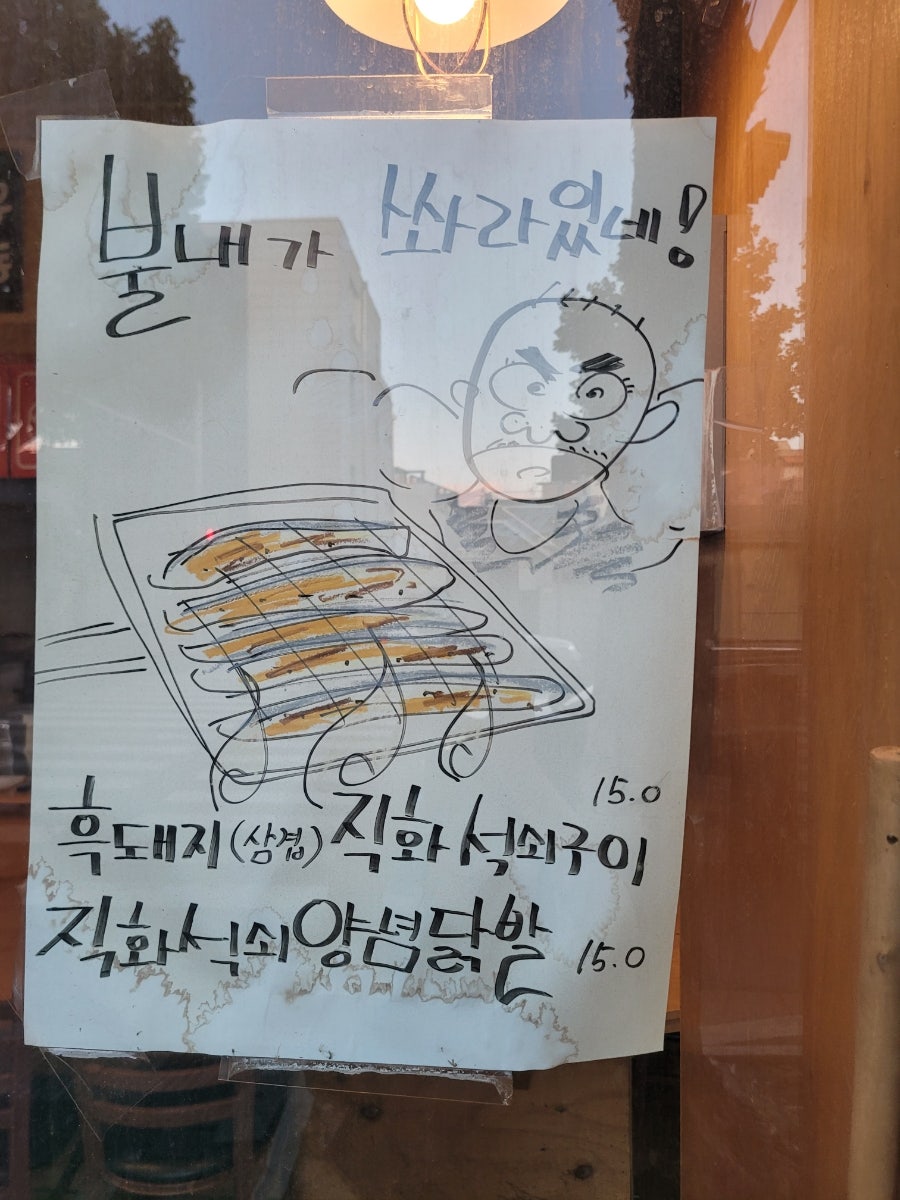 불내가 쏴라있네!
15.0
흑돼지(삼겹) 직화 석쇠구이
직화석쇠양념닭발 15.0